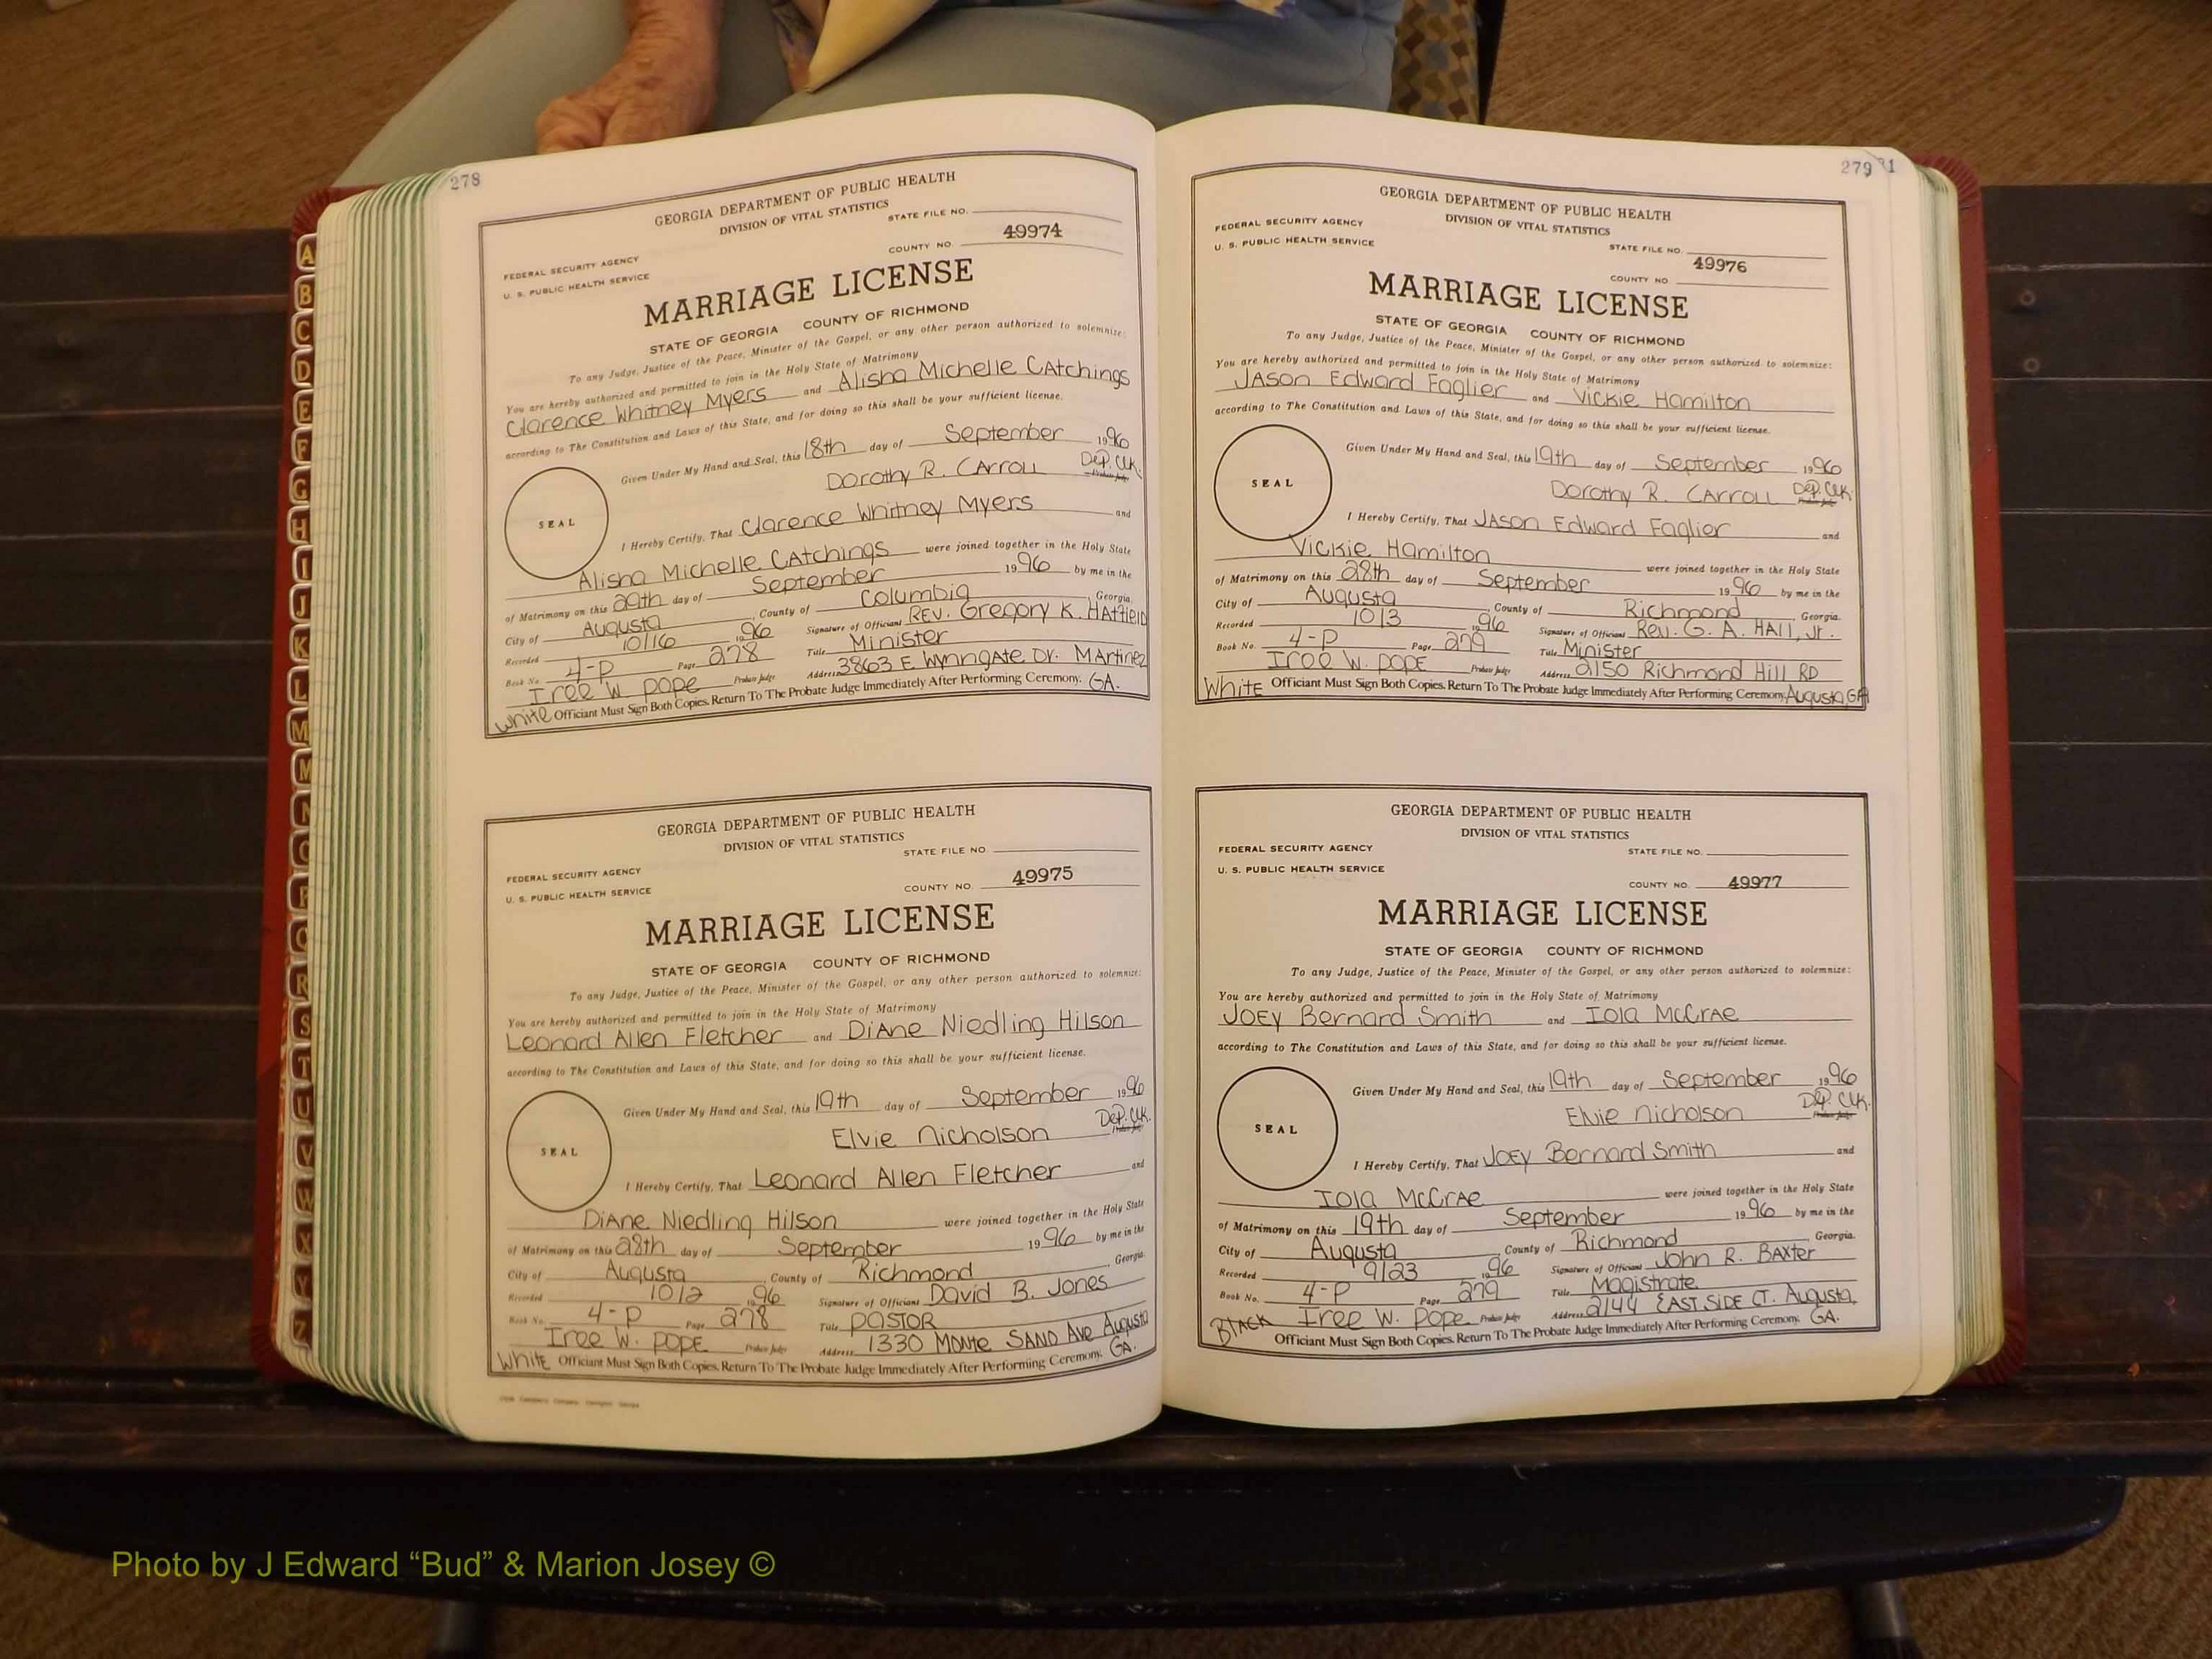 278
GEORGIA DEPARTMENT OF PUBLIC HEALTH
DIVISION OF VITAL STATISTICS
STATE FILE NO.
49974
COUNTY NO.
FEDERAL SECURITY AGENCY
U. S. PUBLIC HEALTH SERVICE
MARRIAGE LICENSE
STATE OF GEORGIA COUNTY OF RICHMOND
To any Judge, Justice of the Peace, Minister of the Gospel, or any other person authorized to solemnize:
You are hereby authorized and permitted to join in the Holy State of Matrimony
Clarence Whitney Myers and Alisha Michelle CAtchings
according to The Constitution and Laws of this State, and for doing so this shall be your sufficient license.
Given Under My Hand and Seal, this 18th day of September 1996
Dorothy R. CArroll Dep. Clk.
Probate Judge
SEAL
I Hereby Certify, That Clarence Whitney Myers and
Alisha Michelle CAtchings were joined together in the Holy State
of Matrimony on this 29th day of September 1996 by me in the
City of Augusta, County of Columbia, Georgia.
Recorded 10/16 1996 Signature of Officiant REV. Gregory K. HAtfield
Book No. 4-P Page 278 Title Minister
Iree W. Pope Probate Judge Address 3863 E Wynngate Dr. MArtinez
White Officiant Must Sign Both Copies. Return To The Probate Judge Immediately After Performing Ceremony. GA.
GEORGIA DEPARTMENT OF PUBLIC HEALTH
DIVISION OF VITAL STATISTICS
STATE FILE NO.
FEDERAL SECURITY AGENCY
U. S. PUBLIC HEALTH SERVICE
COUNTY NO. 49975
MARRIAGE LICENSE
STATE OF GEORGIA COUNTY OF RICHMOND
To any Judge, Justice of the Peace, Minister of the Gospel, or any other person authorized to solemnize:
You are hereby authorized and permitted to join in the Holy State of Matrimony
Leonard Allen Fletcher and DiAne Niedling Hilson
according to The Constitution and Laws of this State, and for doing so this shall be your sufficient license.
Given Under My Hand and Seal, this 19th day of September 1996
Elvie Nicholson Dep. Clk.
Probate Judge
SEAL
I Hereby Certify, That Leonard Allen Fletcher and
DiAne Niedling Hilson were joined together in the Holy State
of Matrimony on this 28th day of September 1996 by me in the
City of Augusta, County of Richmond, Georgia.
Recorded 10/2 1996 Signature of Officiant David B. Jones
Book No. 4-P Page 278 Title PASTOR
Iree W. Pope Probate Judge Address 1330 Monte SAND Ave Augusta
White Officiant Must Sign Both Copies. Return To The Probate Judge Immediately After Performing Ceremony. GA.
279 31
GEORGIA DEPARTMENT OF PUBLIC HEALTH
DIVISION OF VITAL STATISTICS
FEDERAL SECURITY AGENCY
U. S. PUBLIC HEALTH SERVICE
STATE FILE NO.
49976
COUNTY NO
MARRIAGE LICENSE
STATE OF GEORGIA COUNTY OF RICHMOND
To any Judge, Justice of the Peace, Minister of the Gospel, or any other person authorized to solemnize:
You are hereby authorized and permitted to join in the Holy State of Matrimony
JAson Edward Faglier and Vickie Hamilton
according to The Constitution and Laws of this State, and for doing so this shall be your sufficient license.
Given Under My Hand and Seal, this 19th day of September 1996
Dorothy R. CArroll Dep. Clk.
Probate Judge
SEAL
I Hereby Certify, That JAson Edward Faglier and
Vickie Hamilton were joined together in the Holy State
of Matrimony on this 28th day of September 1996 by me in the
City of Augusta, County of Richmond, Georgia.
Recorded 10/3 1996 Signature of Officiant Rev. G. A. HAll, Jr.
Book No. 4-P Page 279 Title Minister
Iree W. Pope Probate Judge Address 2150 Richmond Hill RD
White Officiant Must Sign Both Copies. Return To The Probate Judge Immediately After Performing Ceremony. Augusta, GA
GEORGIA DEPARTMENT OF PUBLIC HEALTH
DIVISION OF VITAL STATISTICS
FEDERAL SECURITY AGENCY
STATE FILE NO.
U. S. PUBLIC HEALTH SERVICE
COUNTY NO. 49977
MARRIAGE LICENSE
STATE OF GEORGIA COUNTY OF RICHMOND
To any Judge, Justice of the Peace, Minister of the Gospel, or any other person authorized to solemnize:
You are hereby authorized and permitted to join in the Holy State of Matrimony
JOEy Bernard Smith and Iola McCrAe
according to The Constitution and Laws of this State, and for doing so this shall be your sufficient license.
Given Under My Hand and Seal, this 19th day of September 1996
Elvie Nicholson Dep. Clk.
Probate Judge
SEAL
I Hereby Certify, That JOEy Bernard Smith and
Iola McCrAe were joined together in the Holy State
of Matrimony on this 19th day of September 1996 by me in the
City of Augusta, County of Richmond Georgia.
Recorded 9/23 1996 Signature of Officiant John R. BAxter
Book No. 4-P Page 279 Title Magistrate
BlAck Iree W. Pope Probate Judge Address 2144 EAST SIDE CT. Augusta,
Officiant Must Sign Both Copies. Return To The Probate Judge Immediately After Performing Ceremony. GA.
A
B
C
D
E
F
G
H
I
J
K
L
M
M
N
O
P
Q
R
S
T
U
V
W
X
Y
Z
Photo by J Edward “Bud” & Marion Josey ©